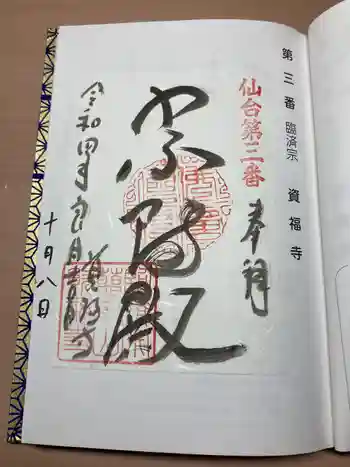 第三番 臨済宗 資福寺
仙台第三番
奉拝
殿
令和四年良月 資福寺
十月八日